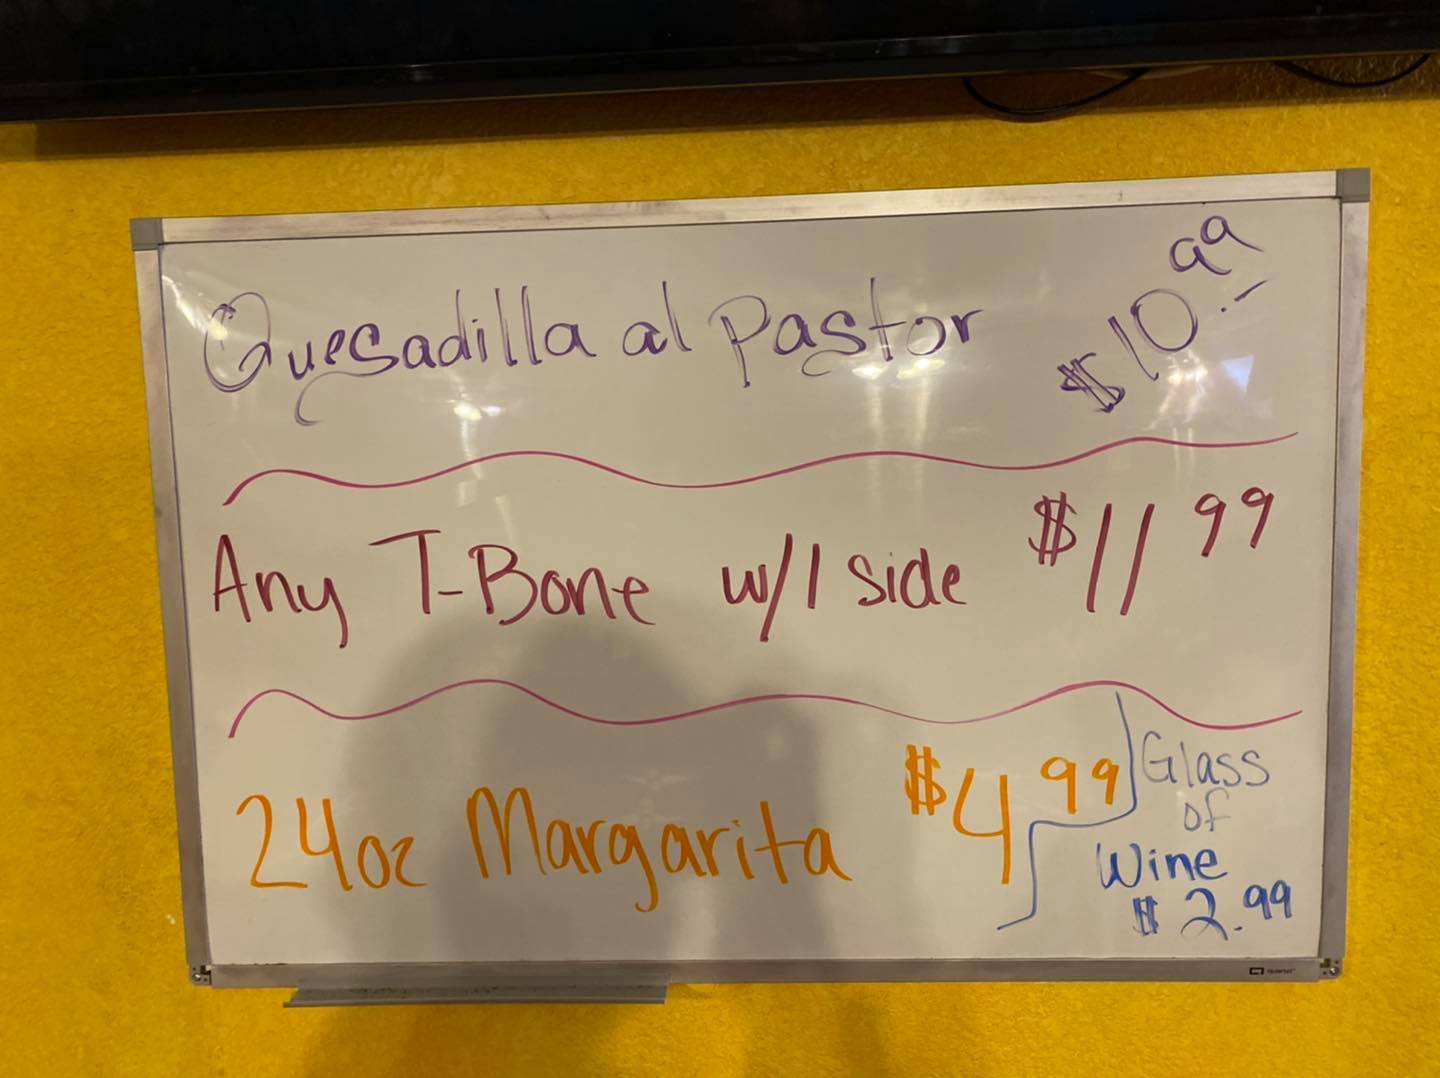 Quesadilla al Pastor $10.99
Any T-Bone w/1 side $11 99
24oz Margarita $4 99
Glass
of
Wine
$2.99